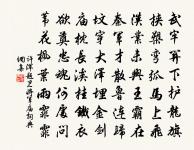 武牢關下護龍旗
挾槊彎弓馬上飛
漢業未興王霸在
秦軍才散魯連歸
墳穿大澤埋金劍
廟枕長溪挂鐵衣
欲奠忠魂何處問
葦花楓葉雨霏霏
許渾題衛將軍廟詞典
網